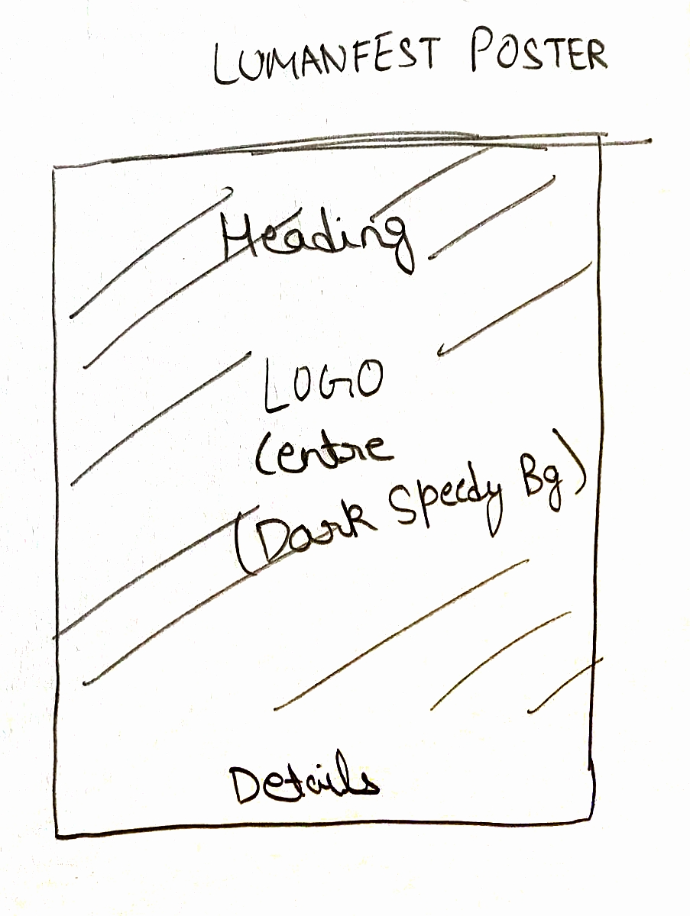 LUMANFEST POSTER
Heading
LOGO
Centre
(Dark Speedy Bg)
Details